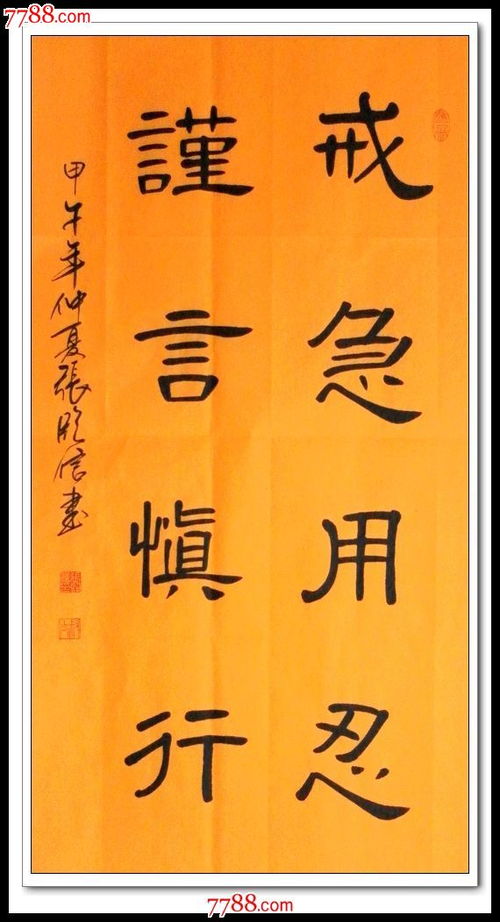 7788.com
戒急用忍
謹言慎行
甲午年仲夏張
信書
7788.com